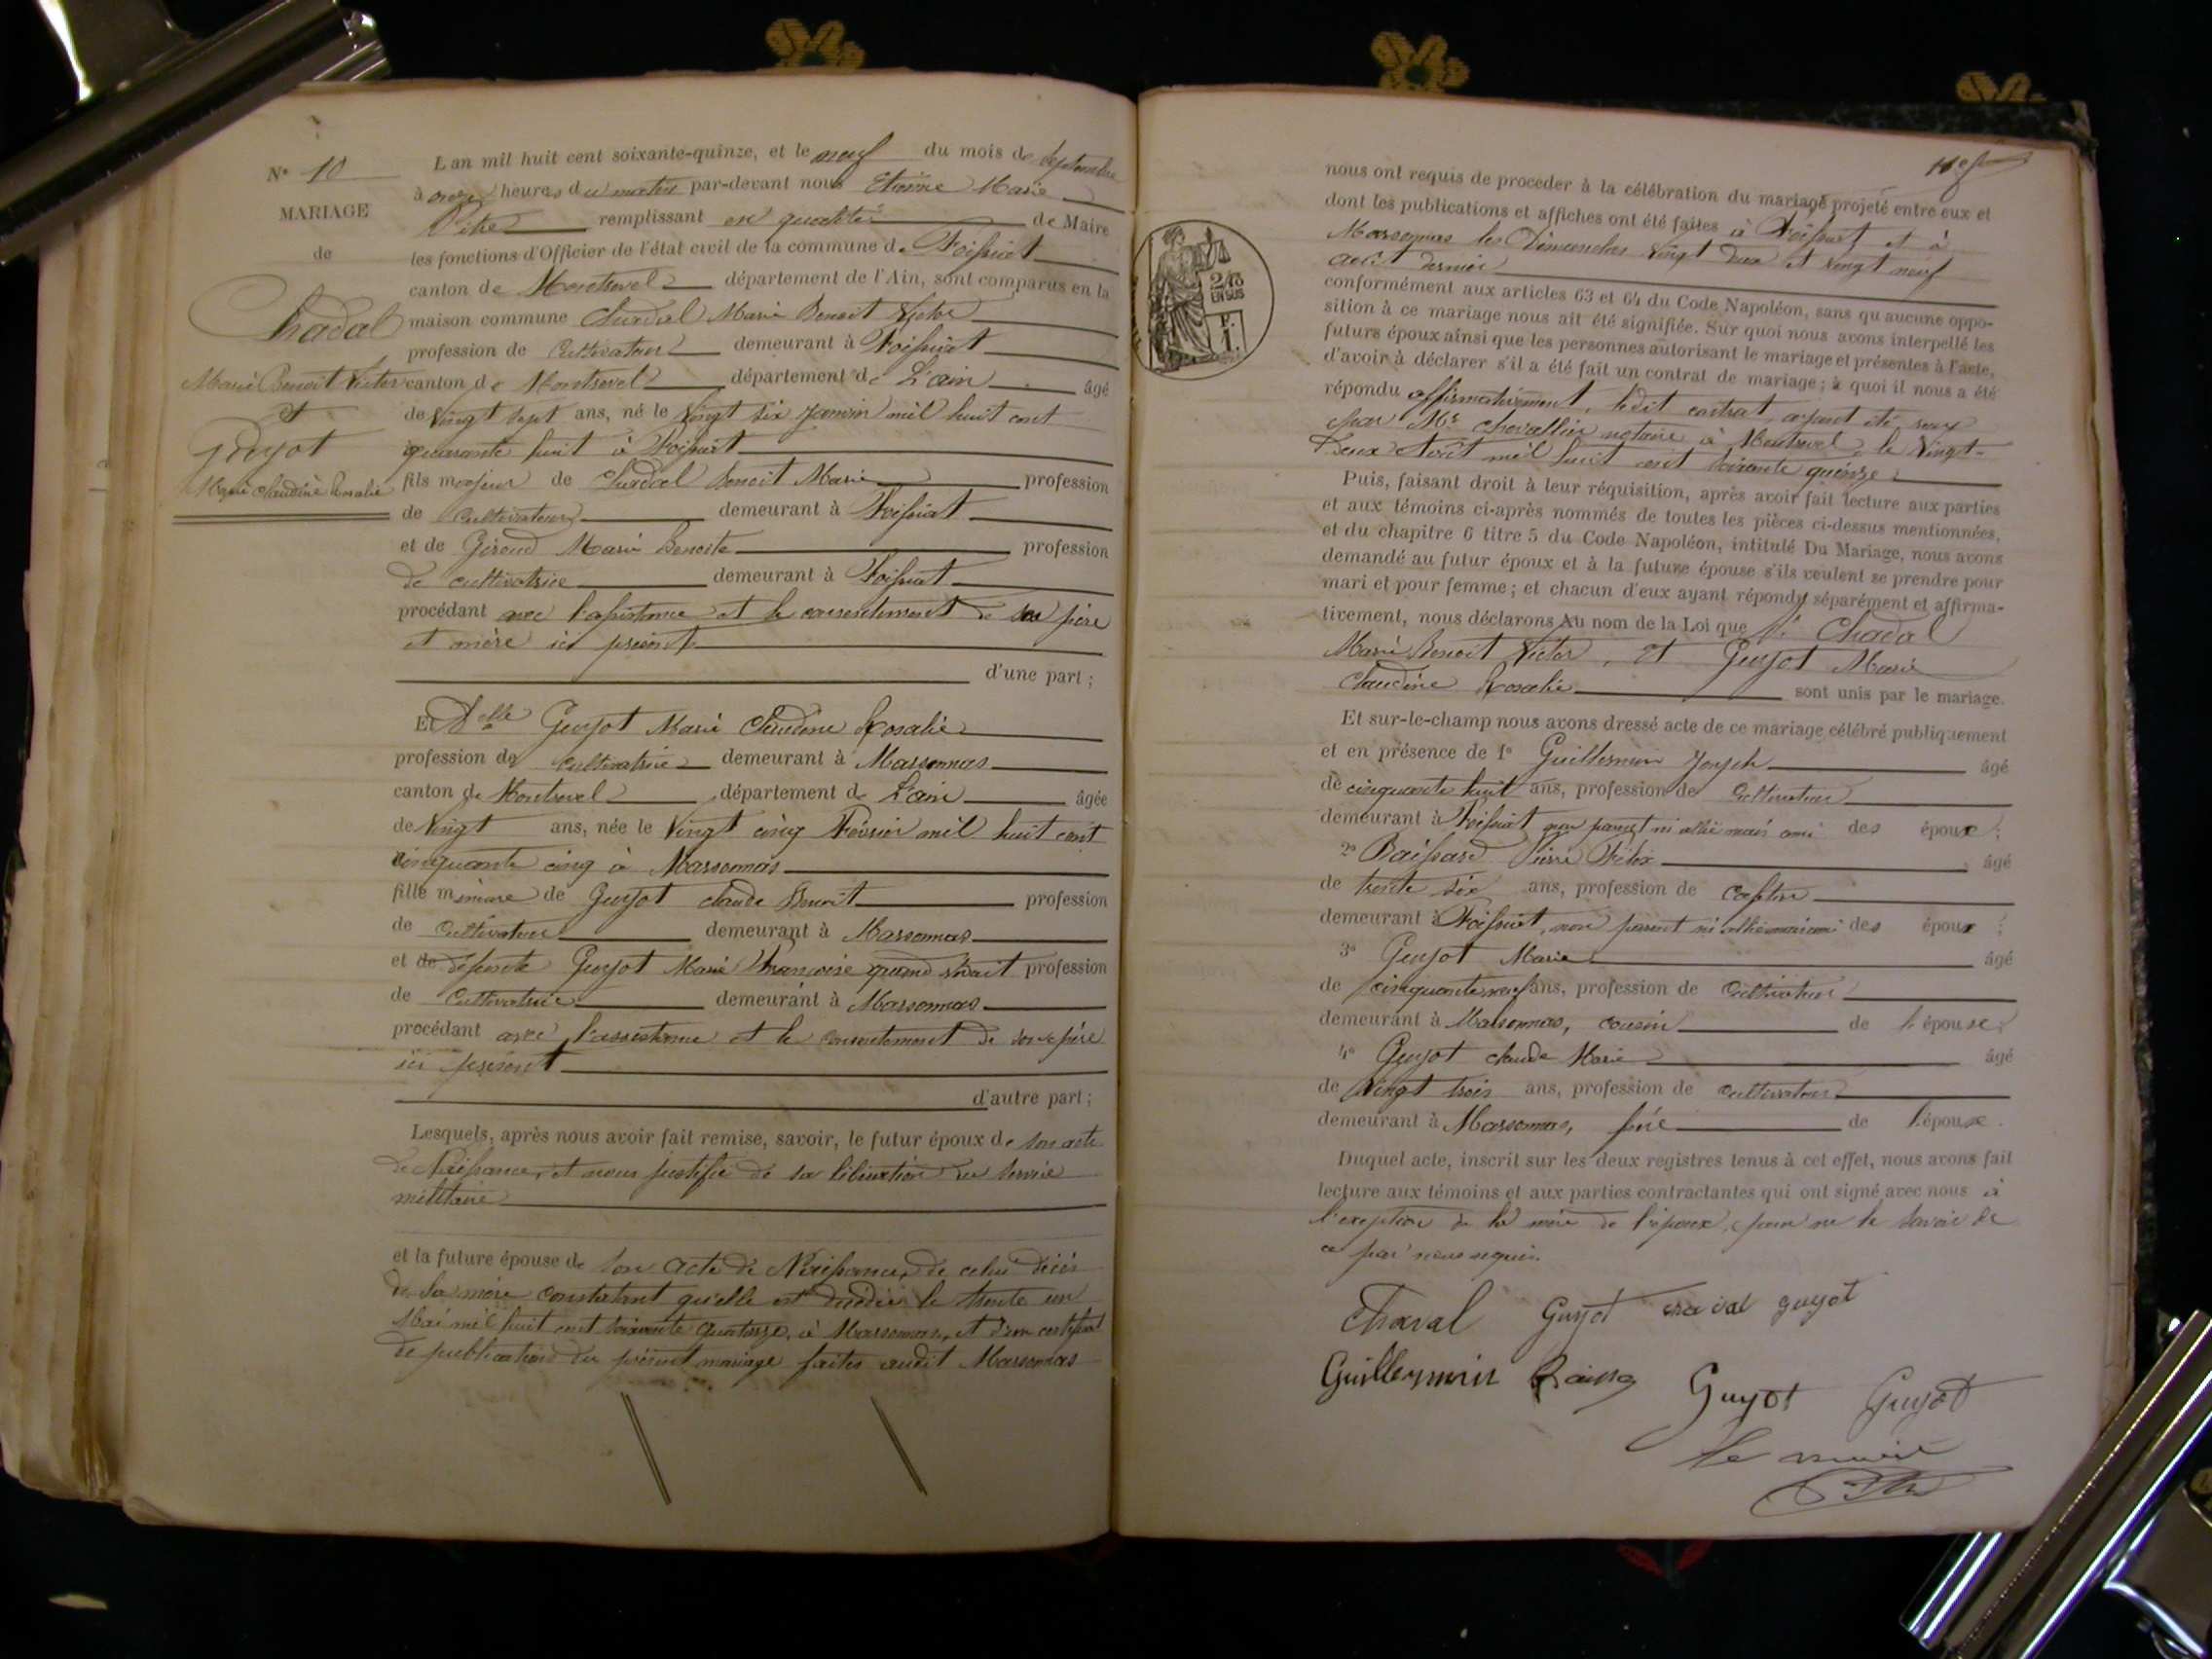 N° 10
MARIAGE
de
Chadal
Marie Benoit Victor
et
Guyot
Marie Claudine Rosalie
L'an mil huit cent soixante-quinze, et le neuf du mois de septembre
à onze heures du matin par-devant nous Etienne Marie
Pitre remplissant en qualité de Maire
les fonctions d'Officier de l'état civil de la commune de Foissiat
canton de Montrevel département de l'Ain, sont comparus en la
maison commune Chadal Marie Benoit Victor
profession de Cultivateur demeurant à Foissiat
canton de Montrevel département de L'ain âgé
de Vingt sept ans, né le Vingt six Janvier mil huit cent
quarante huit à Foissiat
fils majeur de Chadal Benoit Marie profession
de Cultivateur demeurant à Foissiat
et de Giroud Marie Benoite profession
de cultivatrice demeurant à Foissiat
procédant avec l'assistance et le consentement de ses père
et mère ici présents
d'une part ;
Et Delle Guyot Marie Claudine Rosalie
profession de Cultivatrice demeurant à Marsonnas
canton de Montrevel département de L'ain âgée
de Vingt ans, née le Vingt cinq Février mil huit cent
cinquante cinq à Marsonnas
fille mineure de Guyot Claude Benoit profession
de Cultivateur demeurant à Marsonnas
et de défunte Guyot Marie Françoise quand vivait profession
de Cultivatrice demeurant à Marsonnas
procédant avec l'assistance et le consentement de son père
ici présent
d'autre part ;
Lesquels, après nous avoir fait remise, savoir, le futur époux de son acte
de Naissance, et nous justifie de sa libération du service
militaire
et la future épouse de son acte de Naissance, de celui décès
de sa mère constatant qu'elle est décédée le trente un
Mai mil huit cent soixante quatorze, à Marsonnas, et d'un certificat
de publications du présent mariage faites audit Marsonnas
nous ont requis de procéder à la célébration du mariage projeté entre eux et
dont les publications et affiches ont été faites à Foissiat et à
Marsonnas les Dimanches Vingt deux et Vingt neuf
août dernier
conformément aux articles 63 et 64 du Code Napoléon, sans qu'aucune oppo-
sition à ce mariage nous ait été signifiée. Sur quoi nous avons interpellé les
futurs époux ainsi que les personnes autorisant le mariage et présentes à l'acte,
d'avoir à déclarer s'il a été fait un contrat de mariage ; à quoi il nous a été
répondu affirmativement, ledit contrat ayant été reçu
par Me Chevallier notaire à Montrevel, le Vingt-
Deux Août mil huit cent soixante quinze
Puis, faisant droit à leur réquisition, après avoir fait lecture aux parties
et aux témoins ci-après nommés de toutes les pièces ci-dessus mentionnées,
et du chapitre 6 titre 5 du Code Napoléon, intitulé Du Mariage, nous avons
demandé au futur époux et à la future épouse s'ils veulent se prendre pour
mari et pour femme ; et chacun d'eux ayant répondu séparément et affirma-
tivement, nous déclarons Au nom de la Loi que Chadal
Marie Benoit Victor, et Guyot Marie
Claudine Rosalie sont unis par le mariage.
Et sur-le-champ nous avons dressé acte de ce mariage célébré publiquement
et en présence de 1° Guillermin Joseph âgé
de cinquante huit ans, profession de Cultivateur
demeurant à Foissiat non parent ni allié mais ami des époux ;
2° Baissard Pierre Félix âgé
de trente six ans, profession de
demeurant à Foissiat, non parent ni allié mais ami des époux ;
3° Guyot Marie âgé
de cinquante neuf ans, profession de Cultivateur
demeurant à Marsonnas, cousin de l'épouse
4° Guyot Claude Marie âgé
de Vingt trois ans, profession de Cultivateur
demeurant à Marsonnas, frère de l'épouse.
Duquel acte, inscrit sur les deux registres tenus à cet effet, nous avons fait
lecture aux témoins et aux parties contractantes qui ont signé avec nous à
l'exeption de la mère de l'époux, pour ne le savoir de
ce par nous requis.
Guyot guyot
Guillermin
Guyot Guyot
le maire